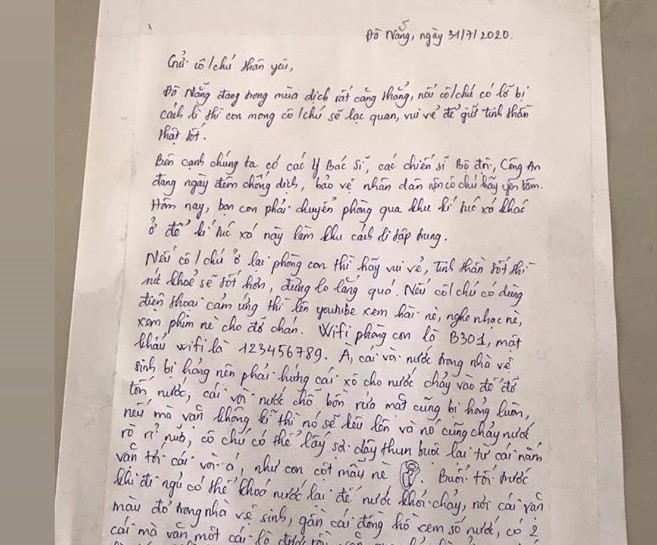 Đà Nẵng, ngày 31/7/2020.
Gửi cô/chú thân yêu,
Đà Nẵng đang trong mùa dịch rất căng thẳng, nếu cô/chú có lỡ bị
cách li thì con mong cô/chú sẽ lạc quan, vui vẻ để giữ tinh thần
thật tốt.
Bên cạnh chúng ta có các Y Bác Sĩ, các chiến sĩ Bộ đội, Công An
đang ngày đêm chống dịch, bảo vệ nhân dân nên cô chú hãy yên tâm.
Hôm nay, bọn con phải chuyển phòng qua khu kí túc xá khác
ở để kí túc xá này làm khu cách li tập trung.
Nếu cô/chú ở lại phòng con thì hãy vui vẻ, tinh thần tốt thì
sức khoẻ sẽ tốt hơn, đừng lo lắng quá. Nếu cô/chú có dùng
điện thoại cảm ứng thì lên youtube xem hài nè, nghe nhạc nè,
xem phim nè cho đỡ chán. Wifi phòng con là B301, mật
khẩu wifi là 123456789. À, cái vòi nước trong nhà vệ
sinh bị hỏng nên phải hứng cái xô cho nước chảy vào đó để đỡ
tốn nước, cái vòi nước chỗ bồn rửa mặt cũng bị hỏng luôn,
nếu mà vặn không kĩ thì nó sẽ kêu lên và nó cũng chảy nước
rò rỉ nữa, cô chú có thể lấy sợi dây thun buộc lại từ cái nắm
vặn tới cái vòi á, như con cột mẫu nè. Buổi tối trước
khi đi ngủ có thể khoá nước lại để nước khỏi chảy, nơi cái vặn
màu đỏ trong nhà vệ sinh, gần cái đồng hồ xem số nước, có 2
cái mà vặn một cái là được rồi